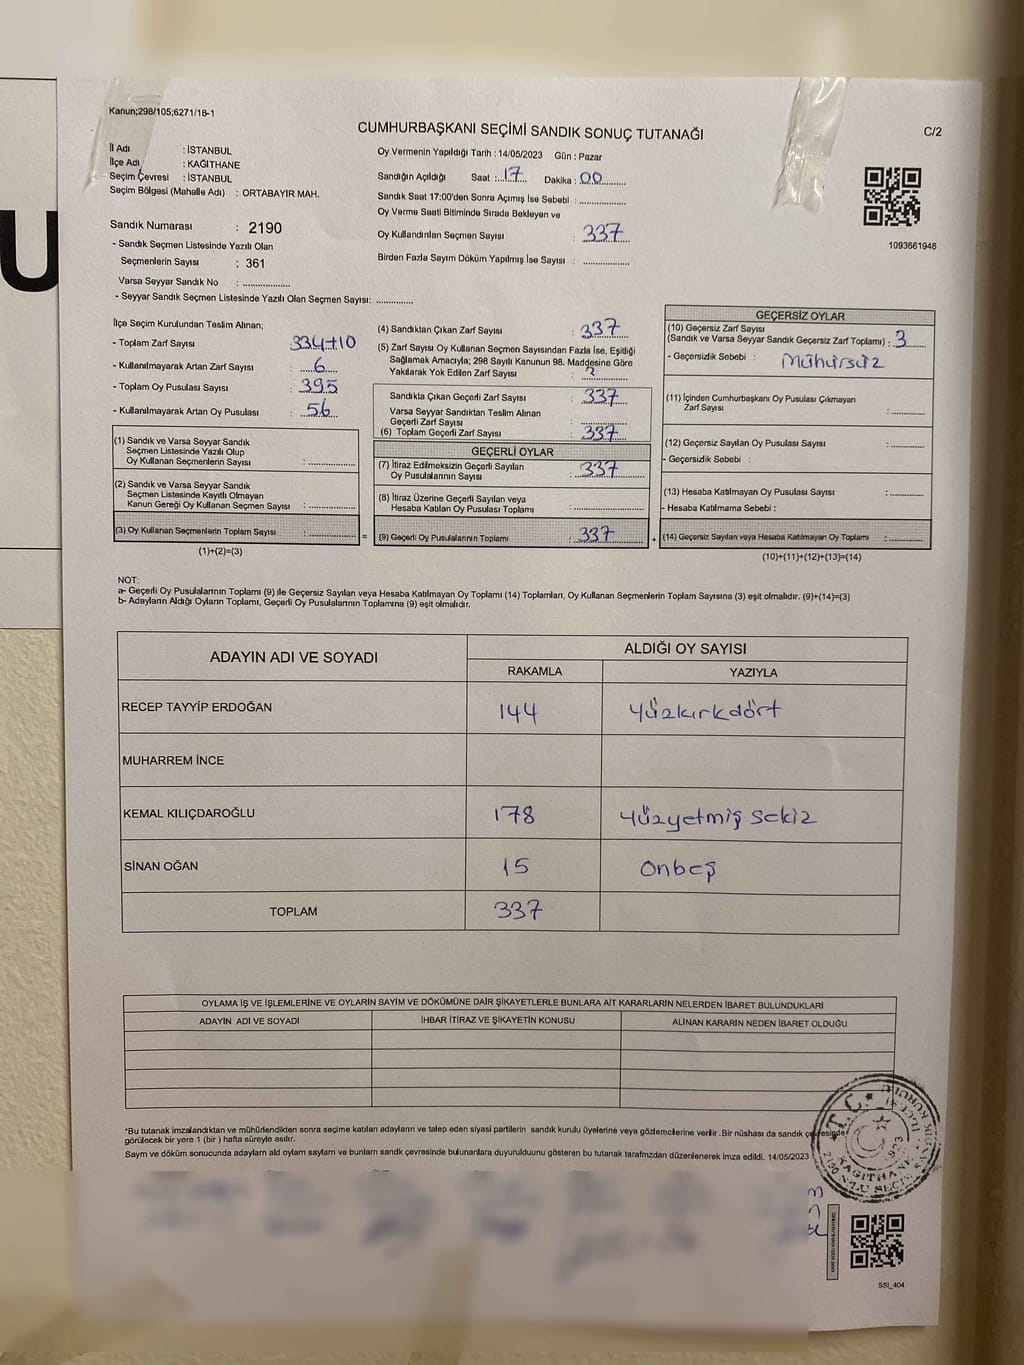 U
Kanun;298/105;6271/18-1
CUMHURBAŞKANI SEÇİMİ SANDIK SONUÇ TUTANAĞI
C/2
İl Adı : İSTANBUL
İlçe Adı : KAĞITHANE
Seçim Çevresi : İSTANBUL
Seçim Bölgesi (Mahalle Adı) : ORTABAYIR MAH.
Sandık Numarası : 2190
- Sandık Seçmen Listesinde Yazılı Olan
Seçmenlerin Sayısı : 361
Varsa Seyyar Sandık No :
- Seyyar Sandık Seçmen Listesinde Yazılı Olan Seçmen Sayısı:
Oy Vermenin Yapıldığı Tarih : 14/05/2023 Gün : Pazar
Sandığın Açıldığı Saat : 17 Dakika : 00
Sandık Saat 17:00'den Sonra Açımış İse Sebebi :
Oy Verme Saati Bitiminde Sırada Bekleyen ve
Oy Kullandırılan Seçmen Sayısı : 337
Birden Fazla Sayım Döküm Yapılmış İse Sayısı :
1093661946
İlçe Seçim Kurulundan Teslim Alınan;
- Toplam Zarf Sayısı 334+10
- Kullanılmayarak Artan Zarf Sayısı : 6
- Toplam Oy Pusulası Sayısı : 395
- Kullanılmayarak Artan Oy Pusulası : 56
(1) Sandık ve Varsa Seyyar Sandık
Seçmen Listesinde Yazılı Olup
Oy Kullanan Seçmenlerin Sayısı :
(2) Sandık ve Varsa Seyyar Sandık
Seçmen Listesinde Kayıtlı Olmayan
Kanun Gereği Oy Kullanan Seçmen Sayısı :
(3) Oy Kullanan Seçmenlerin Toplam Sayısı : =
(1)+(2)=(3)
(4) Sandıktan Çıkan Zarf Sayısı : 337
(5) Zarf Sayısı Oy Kullanan Seçmen Sayısından Fazla İse, Eşitliği
Sağlamak Amacıyla; 298 Sayılı Kanunun 98. Maddesine Göre
Yakılarak Yok Edilen Zarf Sayısı :
Sandıkta Çıkan Geçerli Zarf Sayısı : 337
Varsa Seyyar Sandıktan Teslim Alınan
Geçerli Zarf Sayısı :
(6) Toplam Geçerli Zarf Sayısı : 337
GEÇERLİ OYLAR
(7) İtiraz Edilmeksizin Geçerli Sayılan
Oy Pusulalarının Sayısı : 337
(8) İtiraz Üzerine Geçerli Sayılan veya
Hesaba Katılan Oy Pusulası Toplamı :
(9) Geçerli Oy Pusulalarının Toplamı : 337 +
GEÇERSİZ OYLAR
(10) Geçersiz Zarf Sayısı
(Sandık ve Varsa Seyyar Sandık Geçersiz Zarf Toplamı) : 3
- Geçersizlik Sebebi : Mühürsüz
(11) İçinden Cumhurbaşkanı Oy Pusulası Çıkmayan
Zarf Sayısı :
(12) Geçersiz Sayılan Oy Pusulası Sayısı :
- Geçersizlik Sebebi :
(13) Hesaba Katılmayan Oy Pusulası Sayısı :
- Hesaba Katılmama Sebebi :
(14) Geçersiz Sayılan veya Hesaba Katılmayan Oy Toplamı :
(10)+(11)+(12)+(13)=(14)
NOT:
a- Geçerli Oy Pusulalarının Toplamı (9) ile Geçersiz Sayılan veya Hesaba Katılmayan Oy Toplamı (14) Toplamları, Oy Kullanan Seçmenlerin Toplam Sayısına (3) eşit olmalıdır. (9)+(14)=(3)
b- Adayların Aldığı Oyların Toplamı, Geçerli Oy Pusulalarının Toplamına (9) eşit olmalıdır.
ADAYIN ADI VE SOYADI
ALDIĞI OY SAYISI
RAKAMLA YAZIYLA
RECEP TAYYİP ERDOĞAN 144 Yüzkırkdört
MUHARREM İNCE
KEMAL KILIÇDAROĞLU 178 Yüzyetmiş sekiz
SİNAN OĞAN 15 Onbeş
TOPLAM 337
OYLAMA İŞ VE İŞLEMLERİNE VE OYLARIN SAYIM VE DÖKÜMÜNE DAİR ŞİKAYETLERLE BUNLARA AİT KARARLARIN NELERDEN İBARET BULUNDUKLARI
ADAYIN ADI VE SOYADI İHBAR İTİRAZ VE ŞİKAYETİN KONUSU ALINAN KARARIN NEDEN İBARET OLDUĞU
*Bu tutanak imzalandıktan ve mühürlendikten sonra seçime katılan adayların ve talep eden siyasi partilerin sandık kurulu üyelerine veya gözlemcilerine verilir .Bir nüshası da sandık çevresinde
görülecek bir yere 1 (bir ) hafta süreyle asılır.
Sayım ve döküm sonucunda adayların aldığı oyların sayılarını ve bunların sandık çevresinde bulunanlara duyurulduğunu gösteren bu tutanak tarafımızdan düzenlenerek imza edildi. 14/05/2023
T.C.
KAĞITHANE
1923
SSI_404